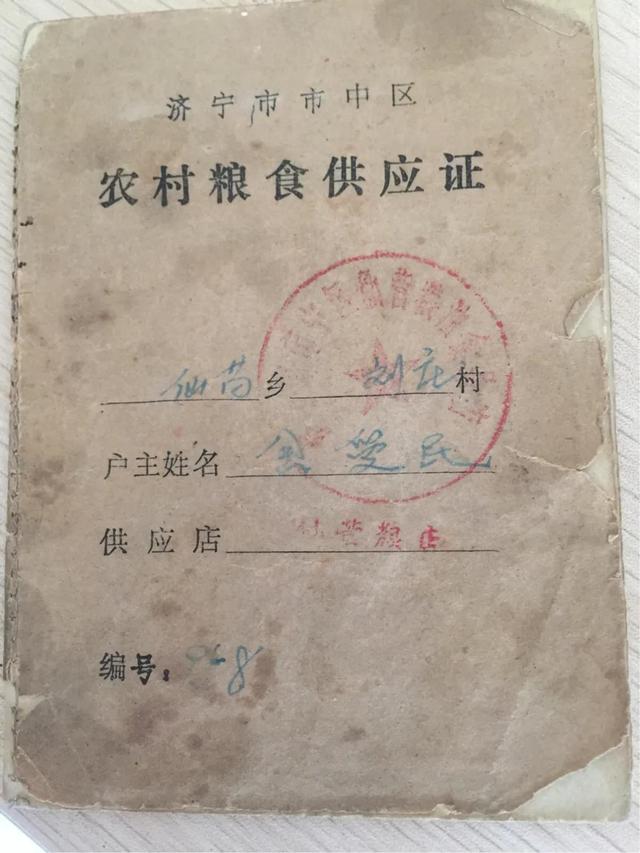 济宁市市中区
农村粮食供应证
仙营乡刘庄村
户主姓名 受民
供应店 仙营粮店
编号：